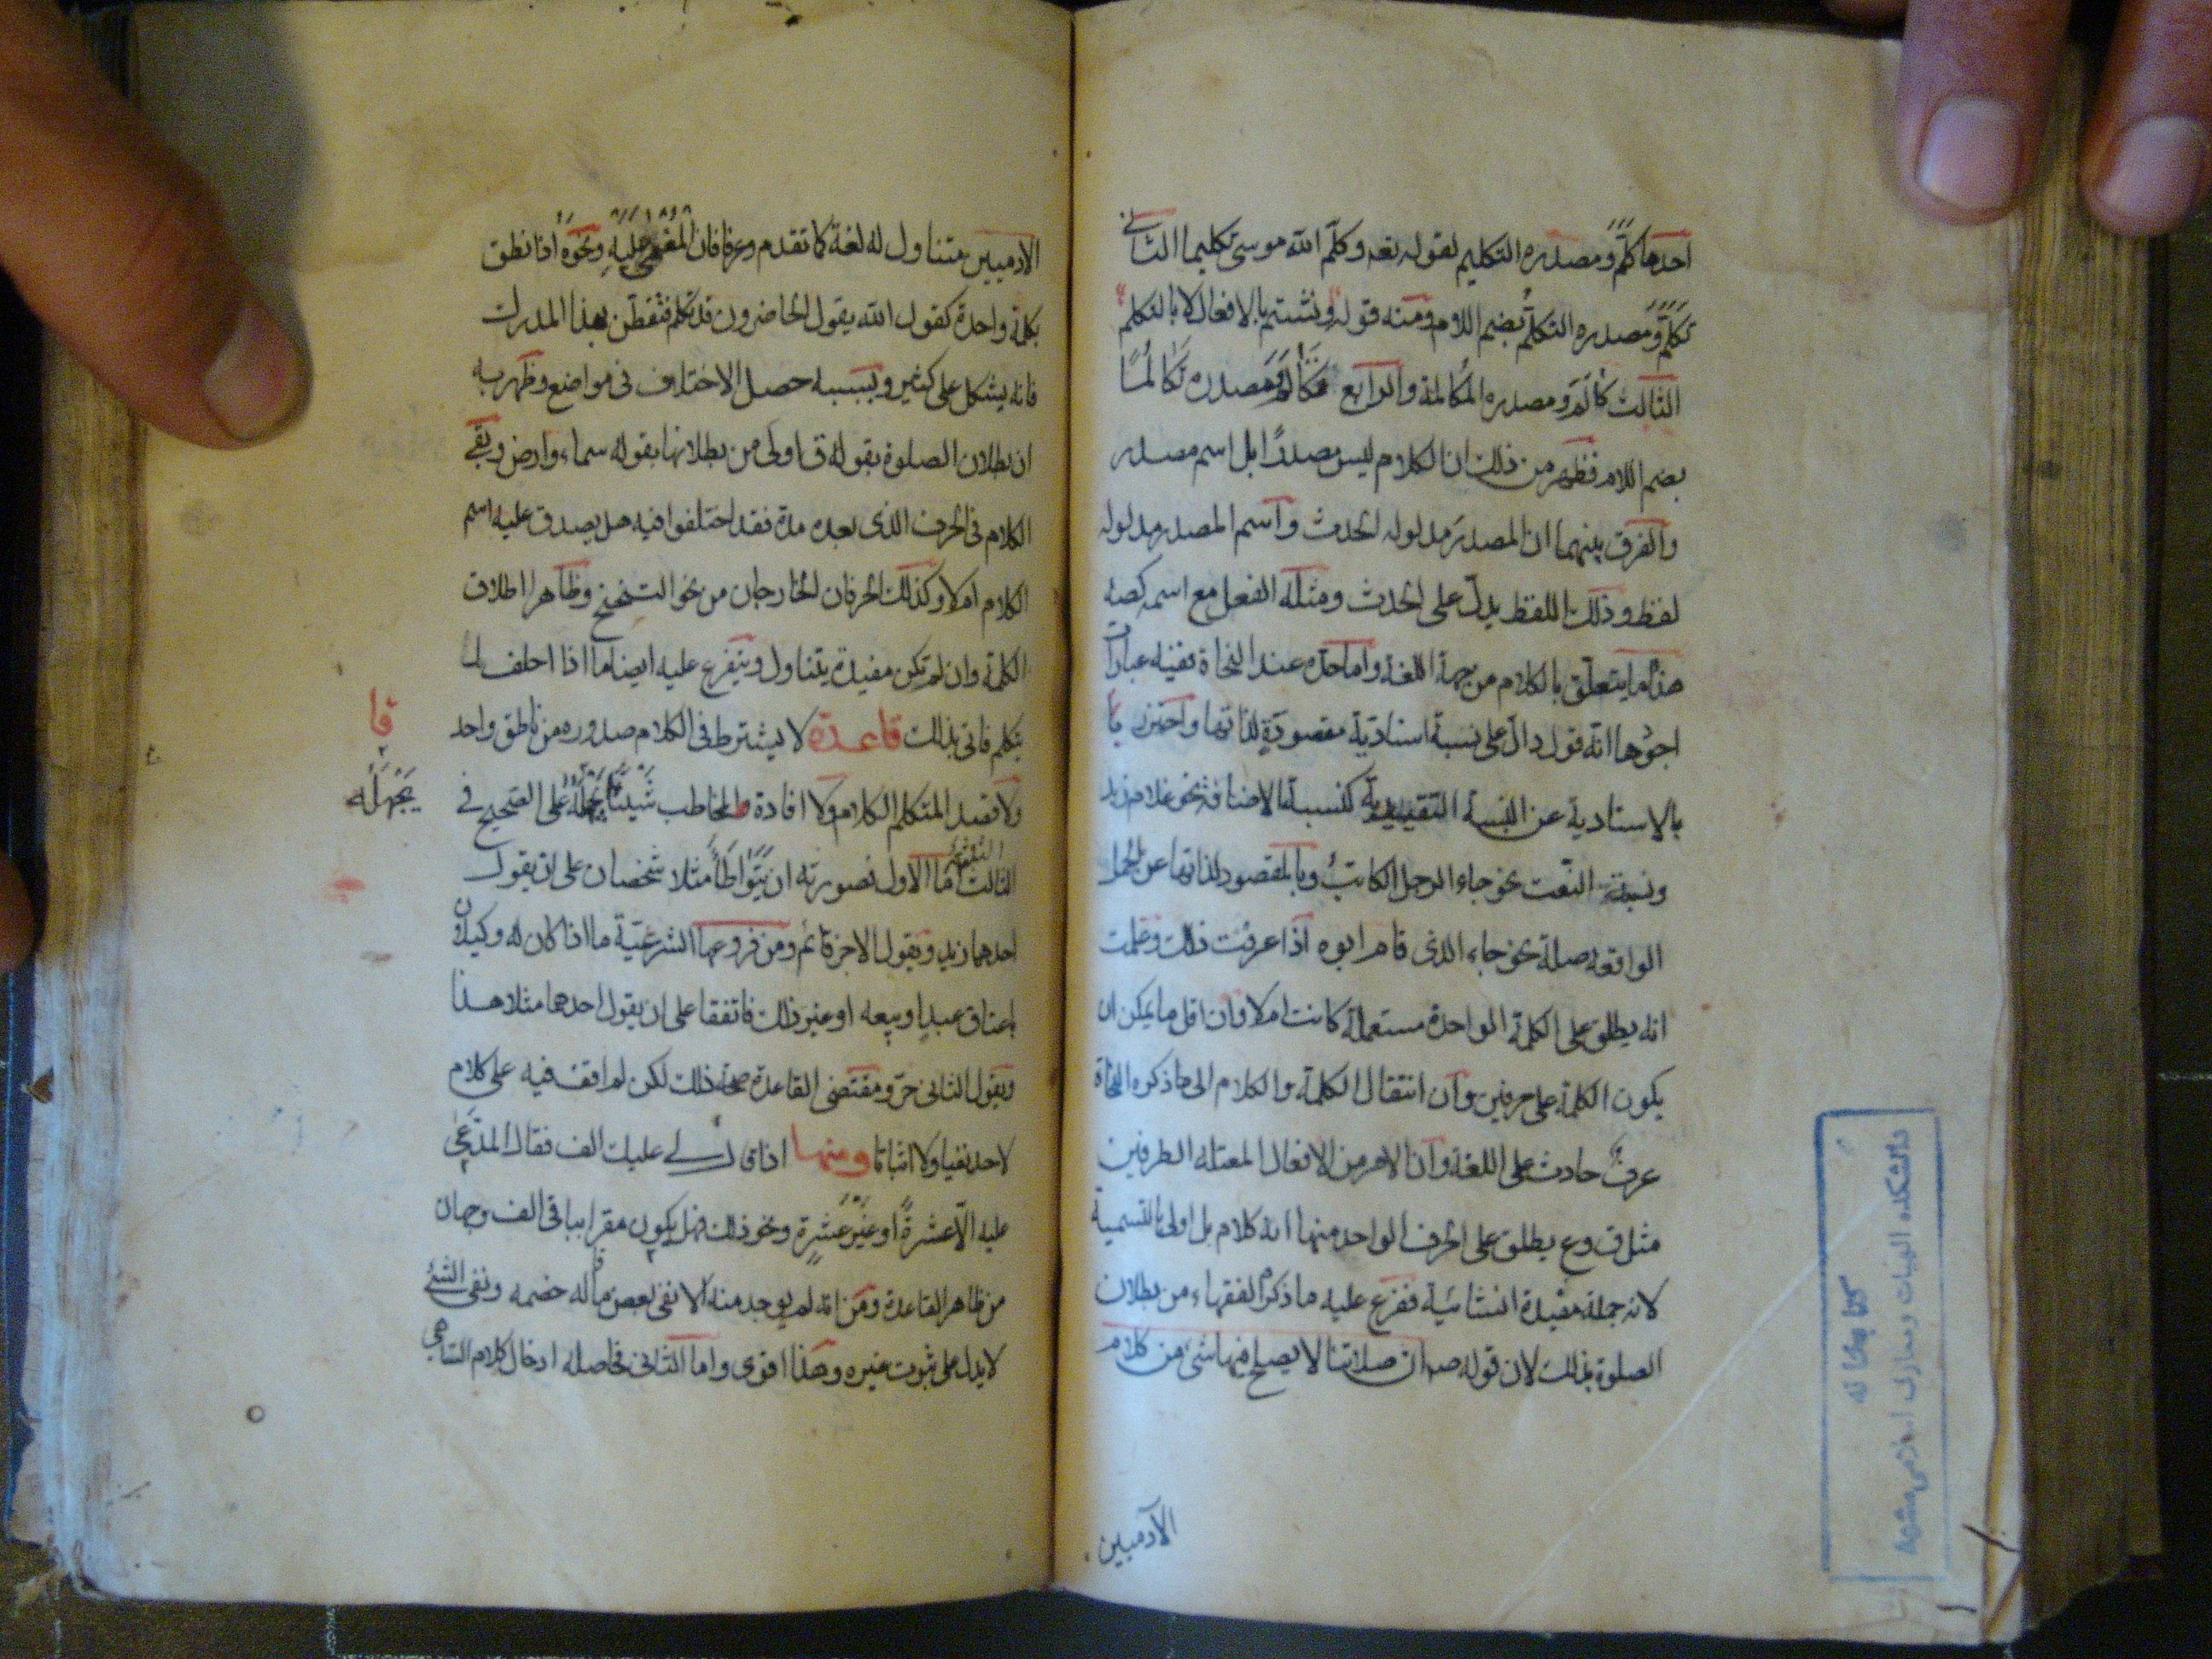 احدها كلّم ومصدره التكليم لقوله تعه وكلّم الله موسى تكليما الثاني
تكلّم ومصدره التكلّم بضم اللام ومنه قوله ونشتم بالافعال لا بالتكلم
الثالث كالَم ومصدره المكالمة والرابع تكالَمَ ومصدره تكالمًا
بضم اللام فظهر من ذلك ان الكلام ليس مصدرًا بل اسم مصدر
والفرق بينهما ان المصدر مدلوله الحدث واسم المصدر مدلوله
لفظ وذلك اللفظ يدلّ على الحدث ومثله الفعل مع اسمه كصه
هذا ما يتعلّق بالكلام من جهة اللغة واما حدّه عند النحاة ففيه عبارات
اجودها انّه قول دالّ على نسبة اسنادية مقصودةٍ لذاتها واحترز نا
بالاسنادية عن النسبة التقييدية كنسبة الاضافة نحو غلام زيد
ونسبة النّعت نحو جاء الرجل الكاتبُ وبالمقصود لذاتها عن الجمل
الواقعه صلة نحو جاء الذى قام ابوه اذا عرفت ذلك وعلمت
انه يطلق على الكلمة الواحدة مستعملة كانت ام لا وان اقل ما يمكن ان
يكون الكلمة على حرفين وان انتقال الكلمة والكلام الى ما ذكره النحاة
عرفٌ حادث على اللغة وان الامر من الافعال المعتله الطرفين
مثل ق وع يطلق على الحرف الواحد منها انه كلام بل اولى بالتسمية
لانه جملة مفيدة انشائية ففرع عليه ما ذكره الفقهاء من بطلان
الصلوة بذلك لان قوله صه ان صلاتنا لا يصلح فيها شىء من كلام
الآدميين
الادميين متناول له لغة كما تقدم وعرفا فان المغمى عليه ونحوه اذا نطق
بكلمة واحدة كقول الله يقول الحاضرون قد تكلم فتفطّن بهذا المدرك
فانه يشكل على كثير وبسببه حصل الاختلاف في مواضع وظهر به
ان بطلان الصلوة بقوله ق اولى من بطلانها بقوله سماء وارض وبقى
الكلام في الحرف الذى بعده مدة فقد اختلفوا فيه هل يصدق عليه اسم
الكلام ام لا وكذلك الحرفان الخارجان من نحو التنحنح وظاهر اطلاق
الكلمة وان لم تكن مفيدة يتناول ويتفرع عليه ايضا ما اذا احلف لا
يتكلم فاتى بذلك قاعدة لا يشترط في الكلام صدوره من ناطق واحد
قا
ولا قصد المتكلم الكلام ولا افادة المخاطب شيئًا يجهلهُ على الصّحيح في
يَجْهَلُه
الثلثة
الثالث امّا الاول فصورته ان يَتَواطَأ مثلا شخصان على ان يقول
احدهما زيد ويقول الاخر قائم ومن فروعها الشرعيّة ما اذا كان له وكيلان
باعتاق عبدٍ او بيعه او غير ذلك فاتفقا على ان يقول احدهما مثلا هذا
ويقول الثانى حرّ ومقتضى القاعدة صحّة ذلك لكن لم اقف فيه على كلام
لاحد نفيا ولا اثباتا ومنها اذا قال لى عليك الف فقال المدّعى
عليه الّا عشرة او غيرُ عشرةٍ ونحو ذلك فهل يكون مقرا بباقى الف وجهان
من ظاهر القاعدة ومن انه لم يوجد منه الا نفى بعض ما قاله خصمه ونفى الشئ
لا يدل على ثبوت غيره وهذا اقوى واما الثانى فحاصله ادخال كلام الساهى
كتابخانه
دانشكده الهيات ومعارف اسلامى مشهد